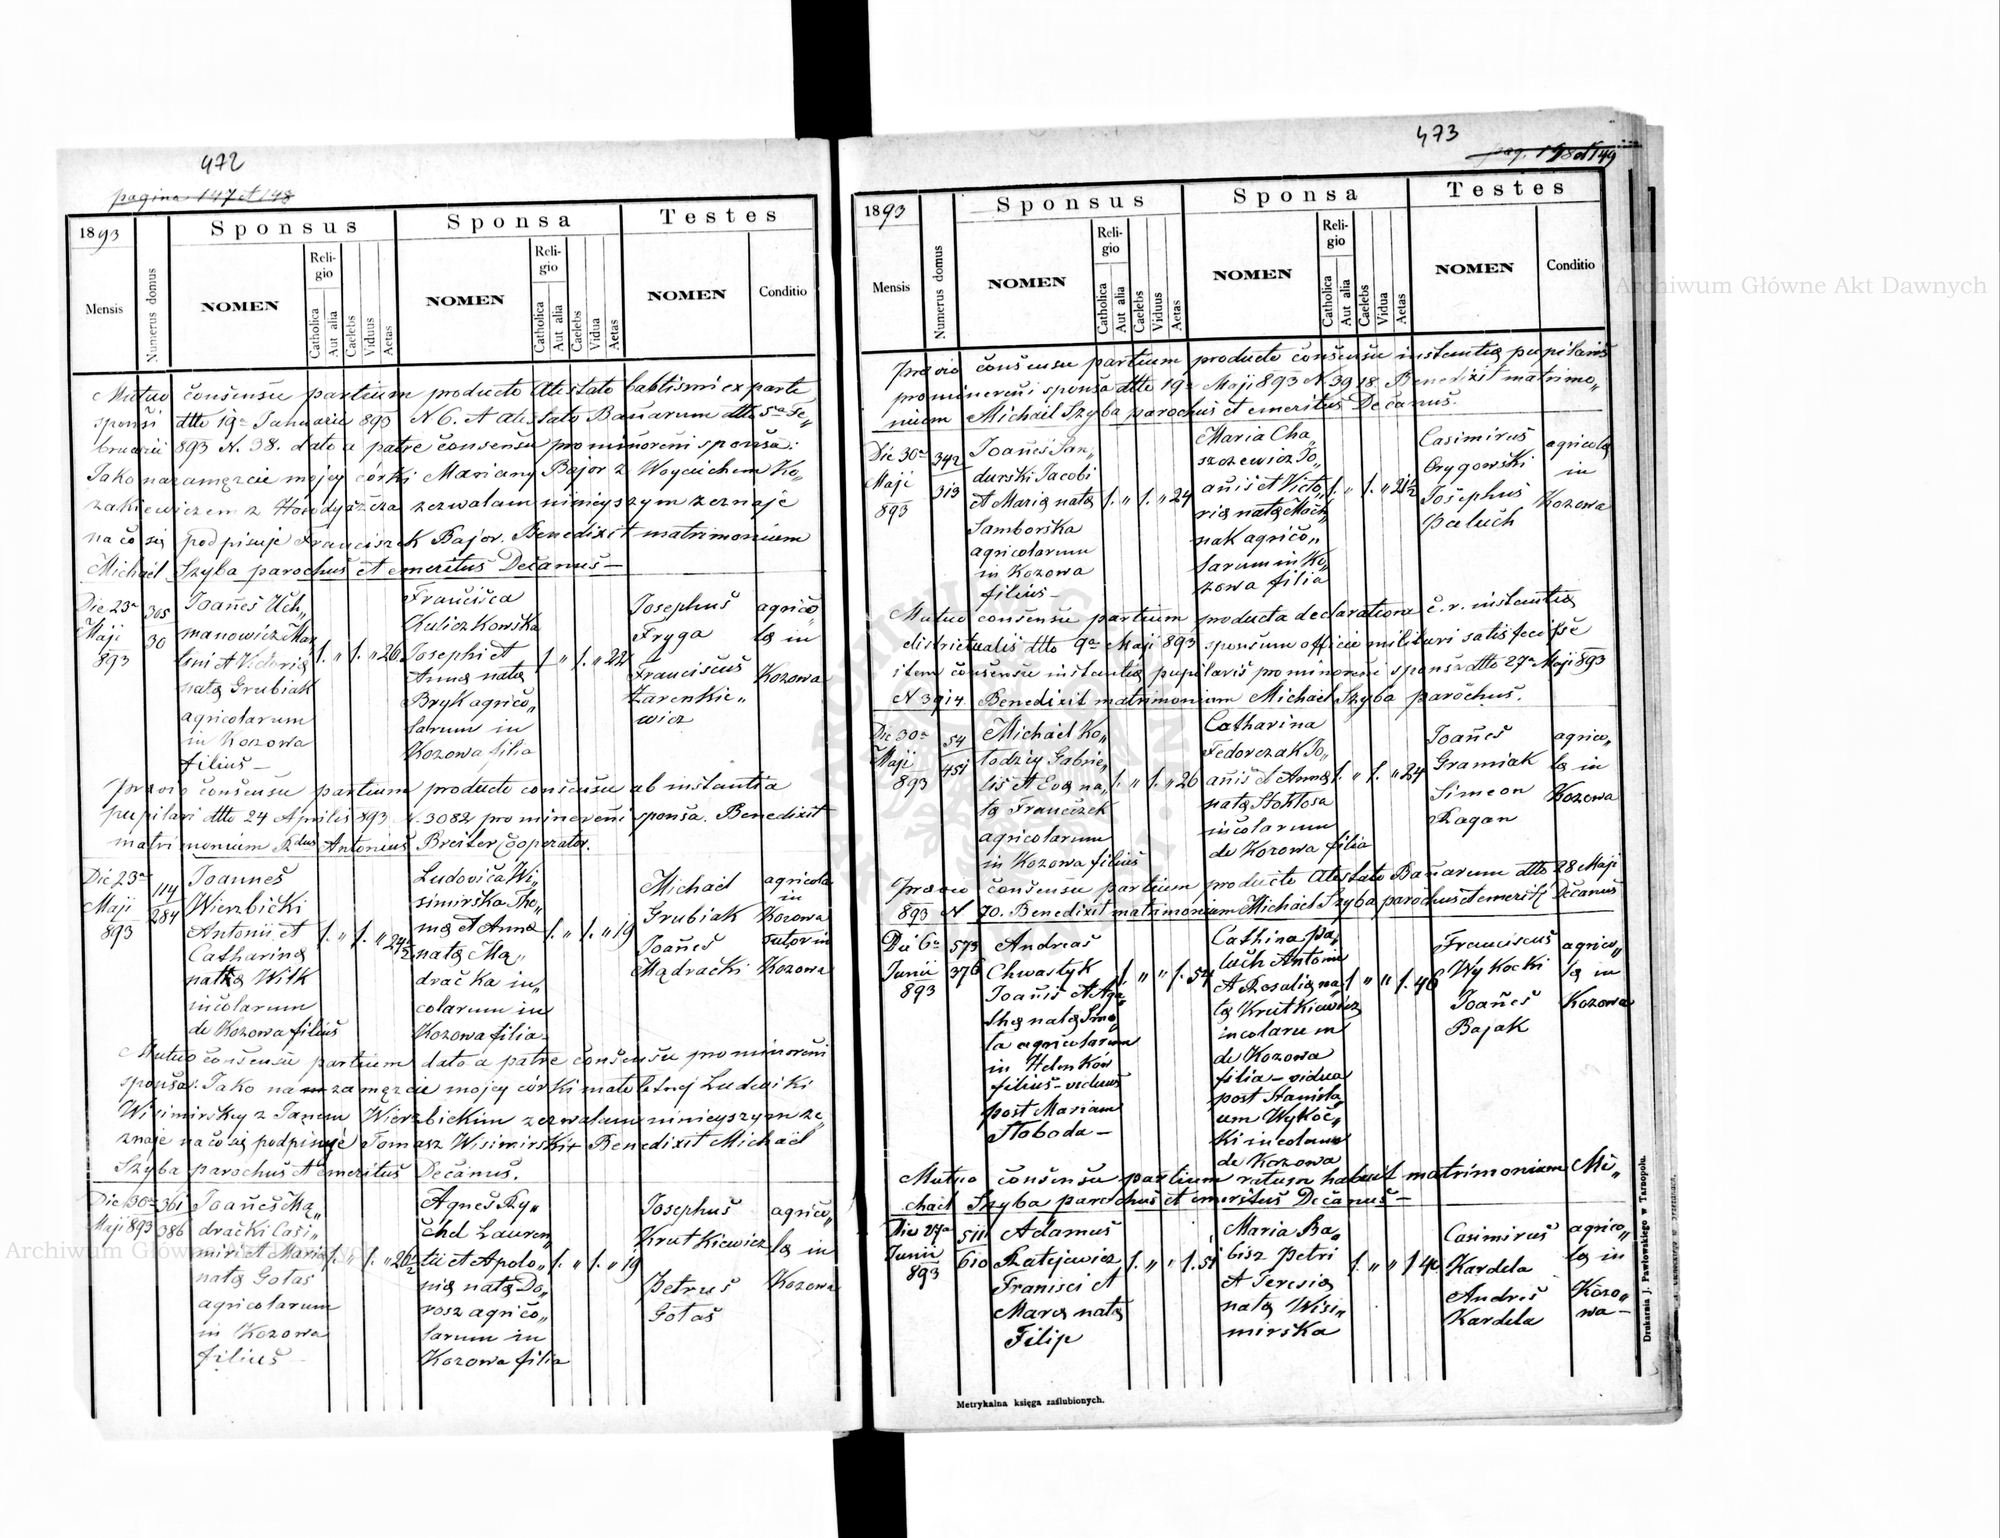 472
pagina 147 et 148
1893
Sponsus
Sponsa
Testes
Mensis
Numerus domus
NOMEN
Religio
Catholica
Aut alia
Caelebs
Viduus
Aetas
NOMEN
Religio
Catholica
Aut alia
Caelebs
Vidua
Aetas
NOMEN
Conditio
Mutuo consensu partium producto Atestato babtismi ex parte
sponsi dtto 19a Januarii 893 N 6. et atestato Banarum dtto 5a Fe„
bruarii 893 N. 38. dato a patre consensu pro minoreni sponsa:
Jako na zamęzcie mojej córki Maryany Bajor z Woyciechem Ko„
zakiewiczem z Horodyszcza zezwalam niniejszym zeznaje
na co się podpisuje Franciszek Bajor. Benedixit matrimonium
Michael Szyba parochus et emeritus Decanus —
Die 23a
Maji
893
305
30
Joannes Uch„
manowicz Mar
tini et Victoria
nata Grubiak
agricolarum
in Kozowa
filius —
1. „ 1. „ 26
Francisca
Kuliczkowska
Josephi et
Anna nata
Bryk agrico„
larum in
Kozowa filia
1 „ 1. „ 22
Josephus
Fryga
Franciscus
Zarenkie„
wicz
agrico„
la in
Kozowa
Praevio consensu partium producto consensu ab instantia
pupilari dtto 24 Aprilis 893 N. 3082 pro minoreni sponsa. Benedixit
matrimonium Rdus Antonius Breiter Cooperator.
Die 23a
Maji
893
114
284
Joannes
Wierzbicki
Antonii et
Catharina
nata Wilk
incolarum
de Kozowa filius
1. „ 1. „ 24½
Ludovica Wi„
simirska Tho„
ma et Anna
nata Ma„
dracka in„
colarum in
Kozowa filia
1. „ 1. „ 19
Michael
Grubiak
Joanes
Mądracki
agricola
in
Kozowa
sutor in
Kozowa
Mutuo consensu partium dato a patre consensu pro minoreni
sponsa: Jako na zamęzcie mojej córki małoletnej Ludwiki
Wisimirskej z Janem Wierzbickim zezwalam niniejszym ze„
znaje na co się podpisuje Tomasz Wisimirski + Benedixit Michael
Szyba parochus et emeritus Decanus.
Die 30a
Maji 893
361
386
Joannes Mą„
dracki Casi„
miri et Maria
nata Gołas
agricolarum
in Kozowa
filius
1. „ 1. „ 26½
Agnes Ry„
chel Lauren„
tii et Apolo„
nia nata Do„
rosz agrico„
larum in
Kozowa filia
1. „ 1. „ 19
Josephus
Krutkiewicz
Petrus
Gołas
agrico„
la in
Kozowa
473
pag. 148 et 149
1893
Sponsus
Sponsa
Testes
Mensis
Numerus domus
NOMEN
Religio
Catholica
Aut alia
Caelebs
Viduus
Aetas
NOMEN
Religio
Catholica
Aut alia
Caelebs
Vidua
Aetas
NOMEN
Conditio
Praevio consensu partium producto consensu instantia pupilaris
pro minoreni sponsa dtto 19a Maji 893 N. 3918 Benedixit matrimo„
nium Michael Szyba parochus et emeritus Decanus.
Die 30a
Maji
893
342
313
Joanes San„
durski Jacobi
et Maria nata
Samborska
agricolarum
in Kozowa
filius —
1. „ 1. „ 24
Maria Cha„
szczewicz Jo„
anis et Victo„
ria nata Mach„
nak agrico„
larum in Ko„
zowa filia
1. „ 1. „ 21½
Casimirus
Orygowski
Josephus
Paluch
agricola
in
Kozowa
Mutuo consensu partium producta declaratione c. r. instantia
districtualis dtto 9a Maji 893 sponsum officio militari satisfecisse
item consensu instantia pupilaris pro minoreni sponsa dtto 27a Maji 893
N 3914 Benedixit matrimonium Michael Szyba parochus.
Die 30a
Maji
893
54
451
Michael Ko„
lodziy Gabrie„
lis et Eva na„
ta Franczek
agricolarum
in Kozowa filius
1. „ 1. „ 26
Catharina
Fedorczak Jo„
anis et Anna
nata Stoklosa
incolarum
de Kozowa filia
1. „ 1. „ 24
Joanes
Gramiak
Simeon
Ragan
agrico„
la in
Kozowa
Praevio consensu partium producto Atestato Banarum dtto 28 Maji
893 N 70. Benedixit matrimonium Michael Szyba parochus et emerit. Decanus
Die 6a
Junii
893
573
376
Andreas
Chwastyk
Joanis et Aga„
tha nata Smo„
la agricolarum
in Helenków
filius – viduus
post Mariam
Słoboda —
1 „ „ 1. 54
Cathina Pa„
luch Antonii
et Rosalia na„
ta Krutkiewicz
incolarum
de Kozowa
filia – vidua
post Stanisla„
um Wykoc„
ki incolam
de Kozowa
1 „ „ 1. 46
Franciscus
Wykocki
Joanes
Bajak
agrico„
la in
Kozowa
Mutuo consensu partium ratum habuit matrimonium Mi„
chael Szyba parochus et emeritus Decanus —
Die 27a
Junii
893
511
610
Adamus
Ratejewicz
Franisci et
Mara nata
Filip
1. „ „ 1. 51
Maria Ba„
bisz Petri
et Teresia
nata Wisi„
mirska
1. „ „ 1 42
Casimirus
Kardela
Andres
Kardela
agrico„
la in
Kozo„
wa —
Metrykalna księga zaślubionych.
Drukarnia J. Pawłowskiego w Tarnopolu.
Archiwum Główne Akt Dawnych
Archiwum Główne Akt Dawnych